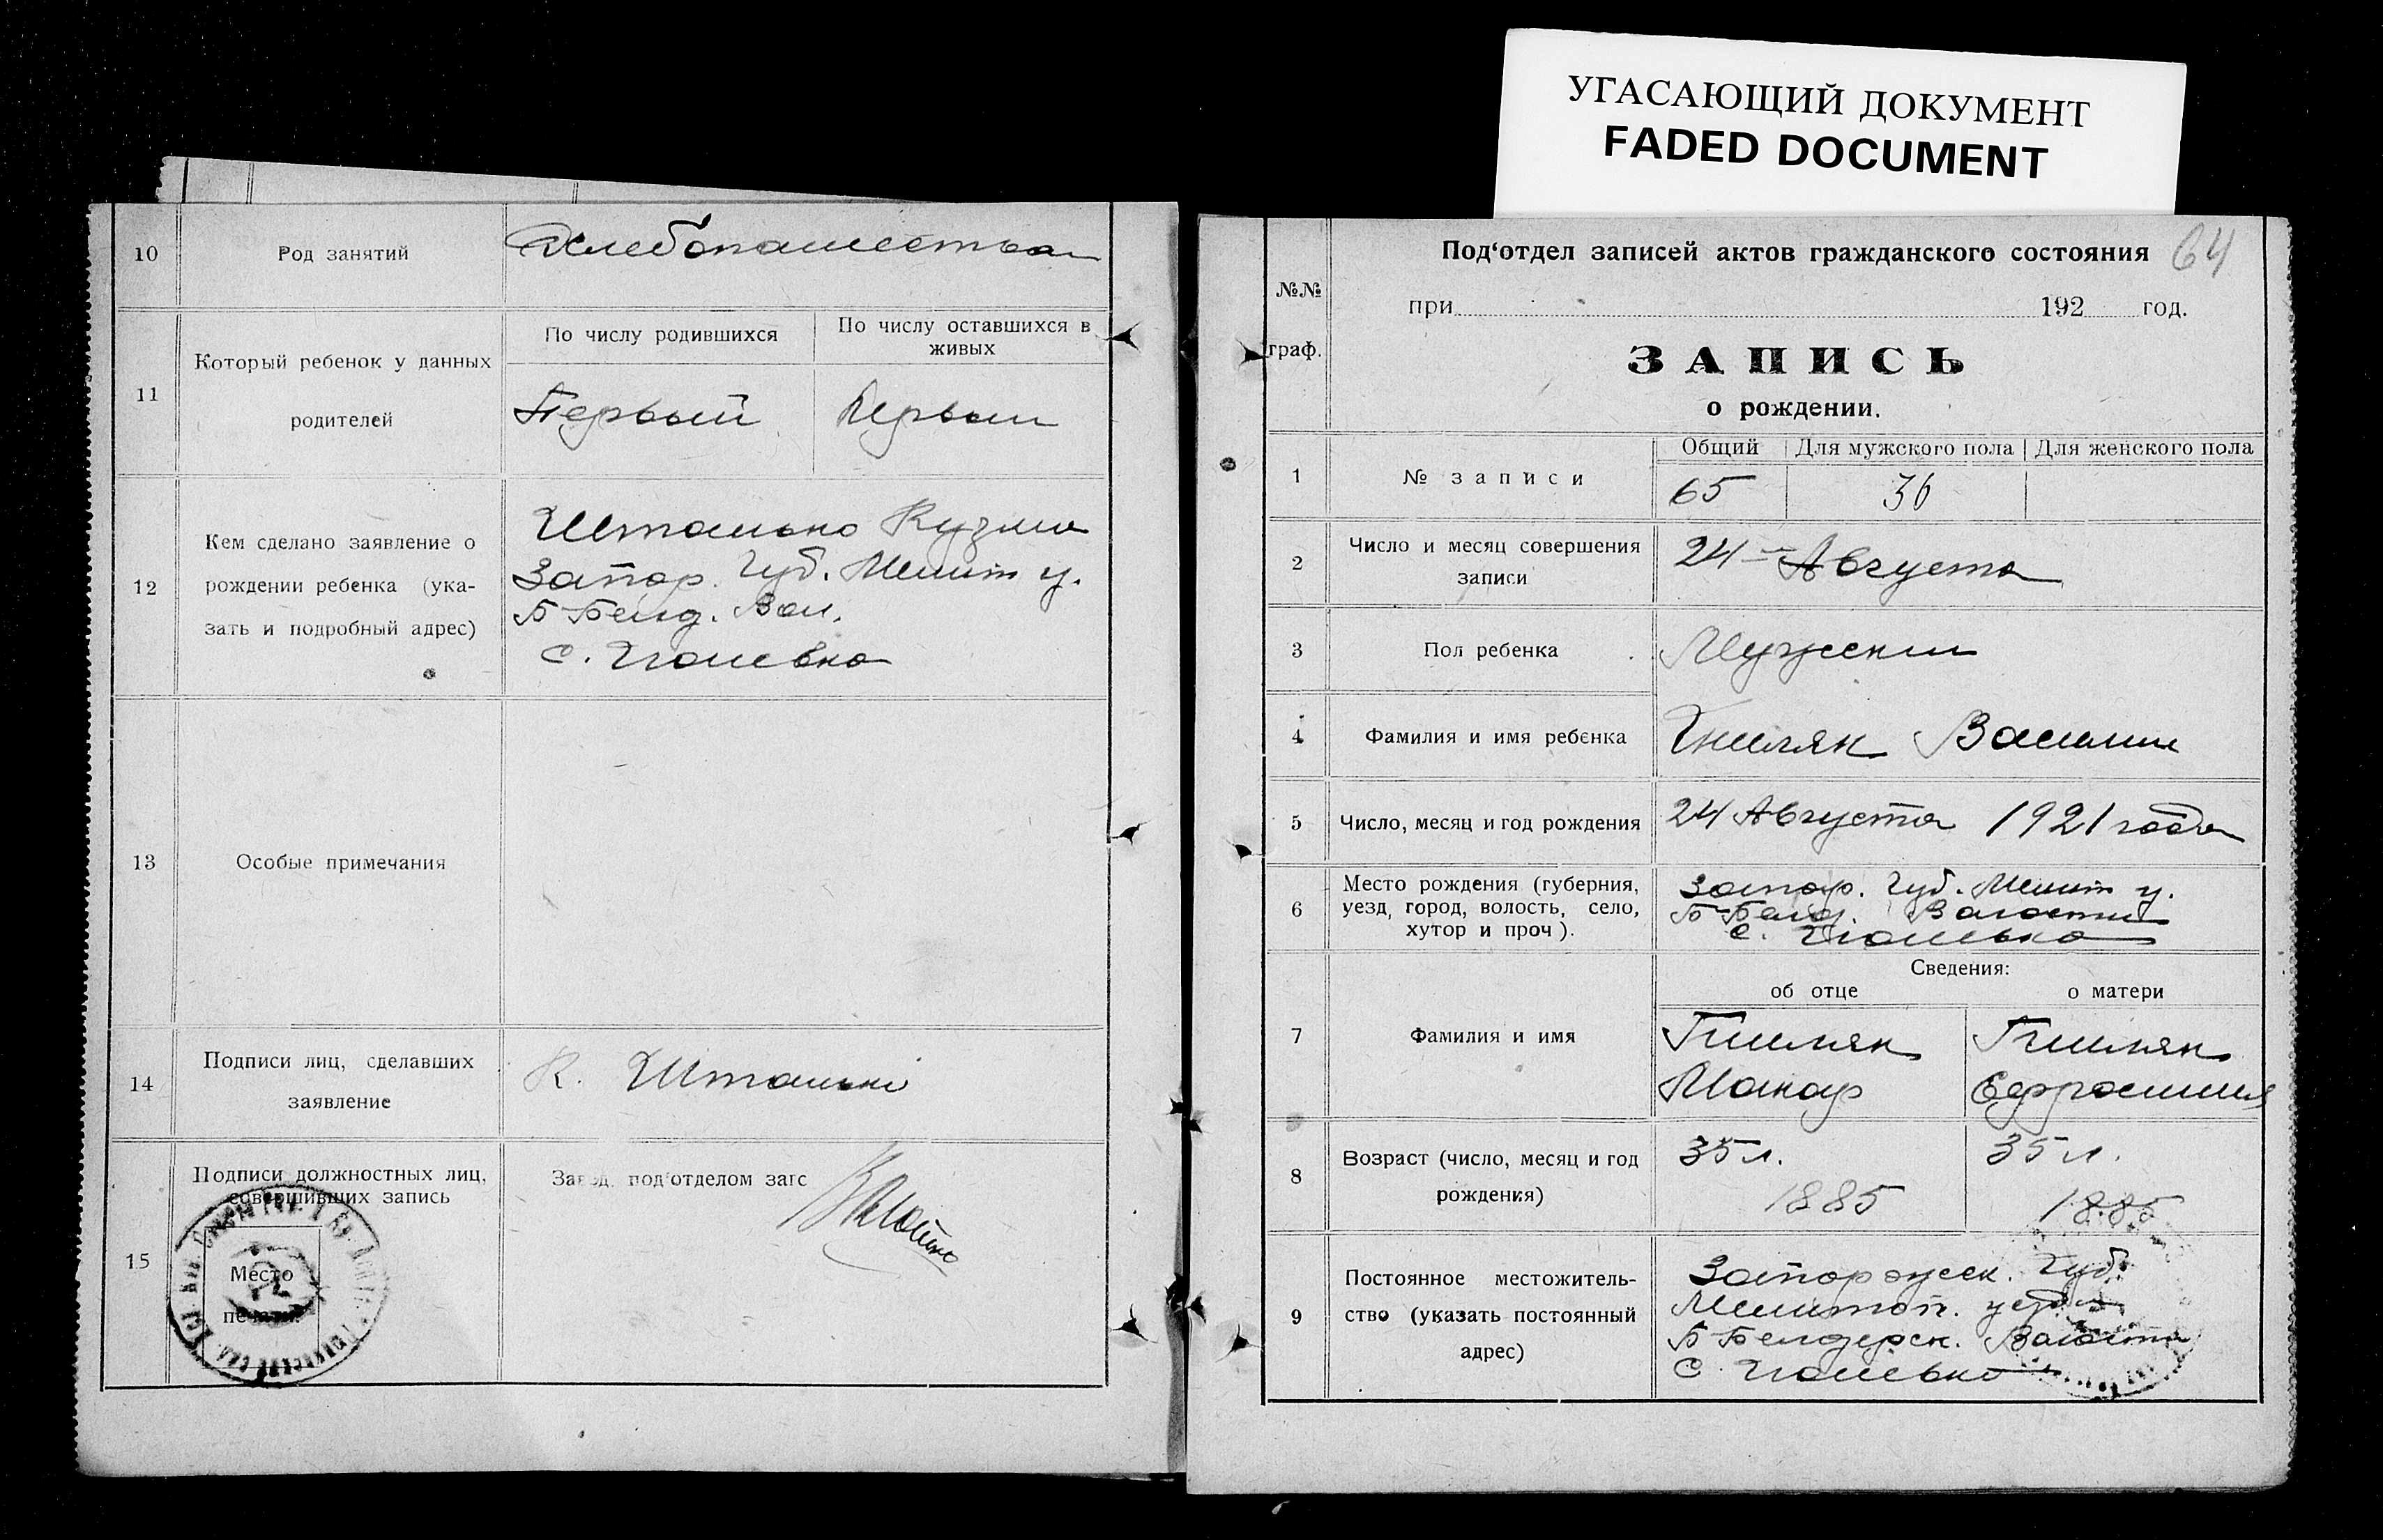 УГАСАЮЩИЙ ДОКУМЕНТ
FADED DOCUMENT
10
Род занятий
Хлебопашества
11
Который ребенок у данных
родителей
По числу родившихся
По числу оставшихся в
живых
Первый
Первый
12
Кем сделано заявление о
рождении ребенка (ука-
зать и подробный адрес)
Кузма
Запор. Губ. Мелит у.
Б-Белод. Вол.
с.
13
Особые примечания
14
Подписи лиц, сделавших
заявление
К.
15
Подписи должностных лиц,
совершивших запись
Место
печати
Завед. под'отделом загс
64
№№
граф.
Под'отдел записей актов гражданского состояния
при 192 год.
ЗАПИСЬ
о рождении.
1
№ записи
Общий
Для мужского пола
Для женского пола
65
36
2
Число и месяц совершения
записи
24-Августа
3
Пол ребенка
Мужский
4
Фамилия и имя ребенка
Гниляк Василий
5
Число, месяц и год рождения
24 Августа 1921 года
6
Место рождения (губерния,
уезд, город, волость, село,
хутор и проч).
Запор. Губ. Мелит у.
Б-Белоз. Волости
с.
7
Фамилия и имя
Сведения:
об отце
о матери
Гниляк
Макар
Гниляк
Ефросиния
8
Возраст (число, месяц и год
рождения)
35 л.
1885
35 л.
1885
9
Постоянное местожитель-
ство (указать постоянный
адрес)
Запорожск. Губ.
Мелитоп. уезда
Волости
с.